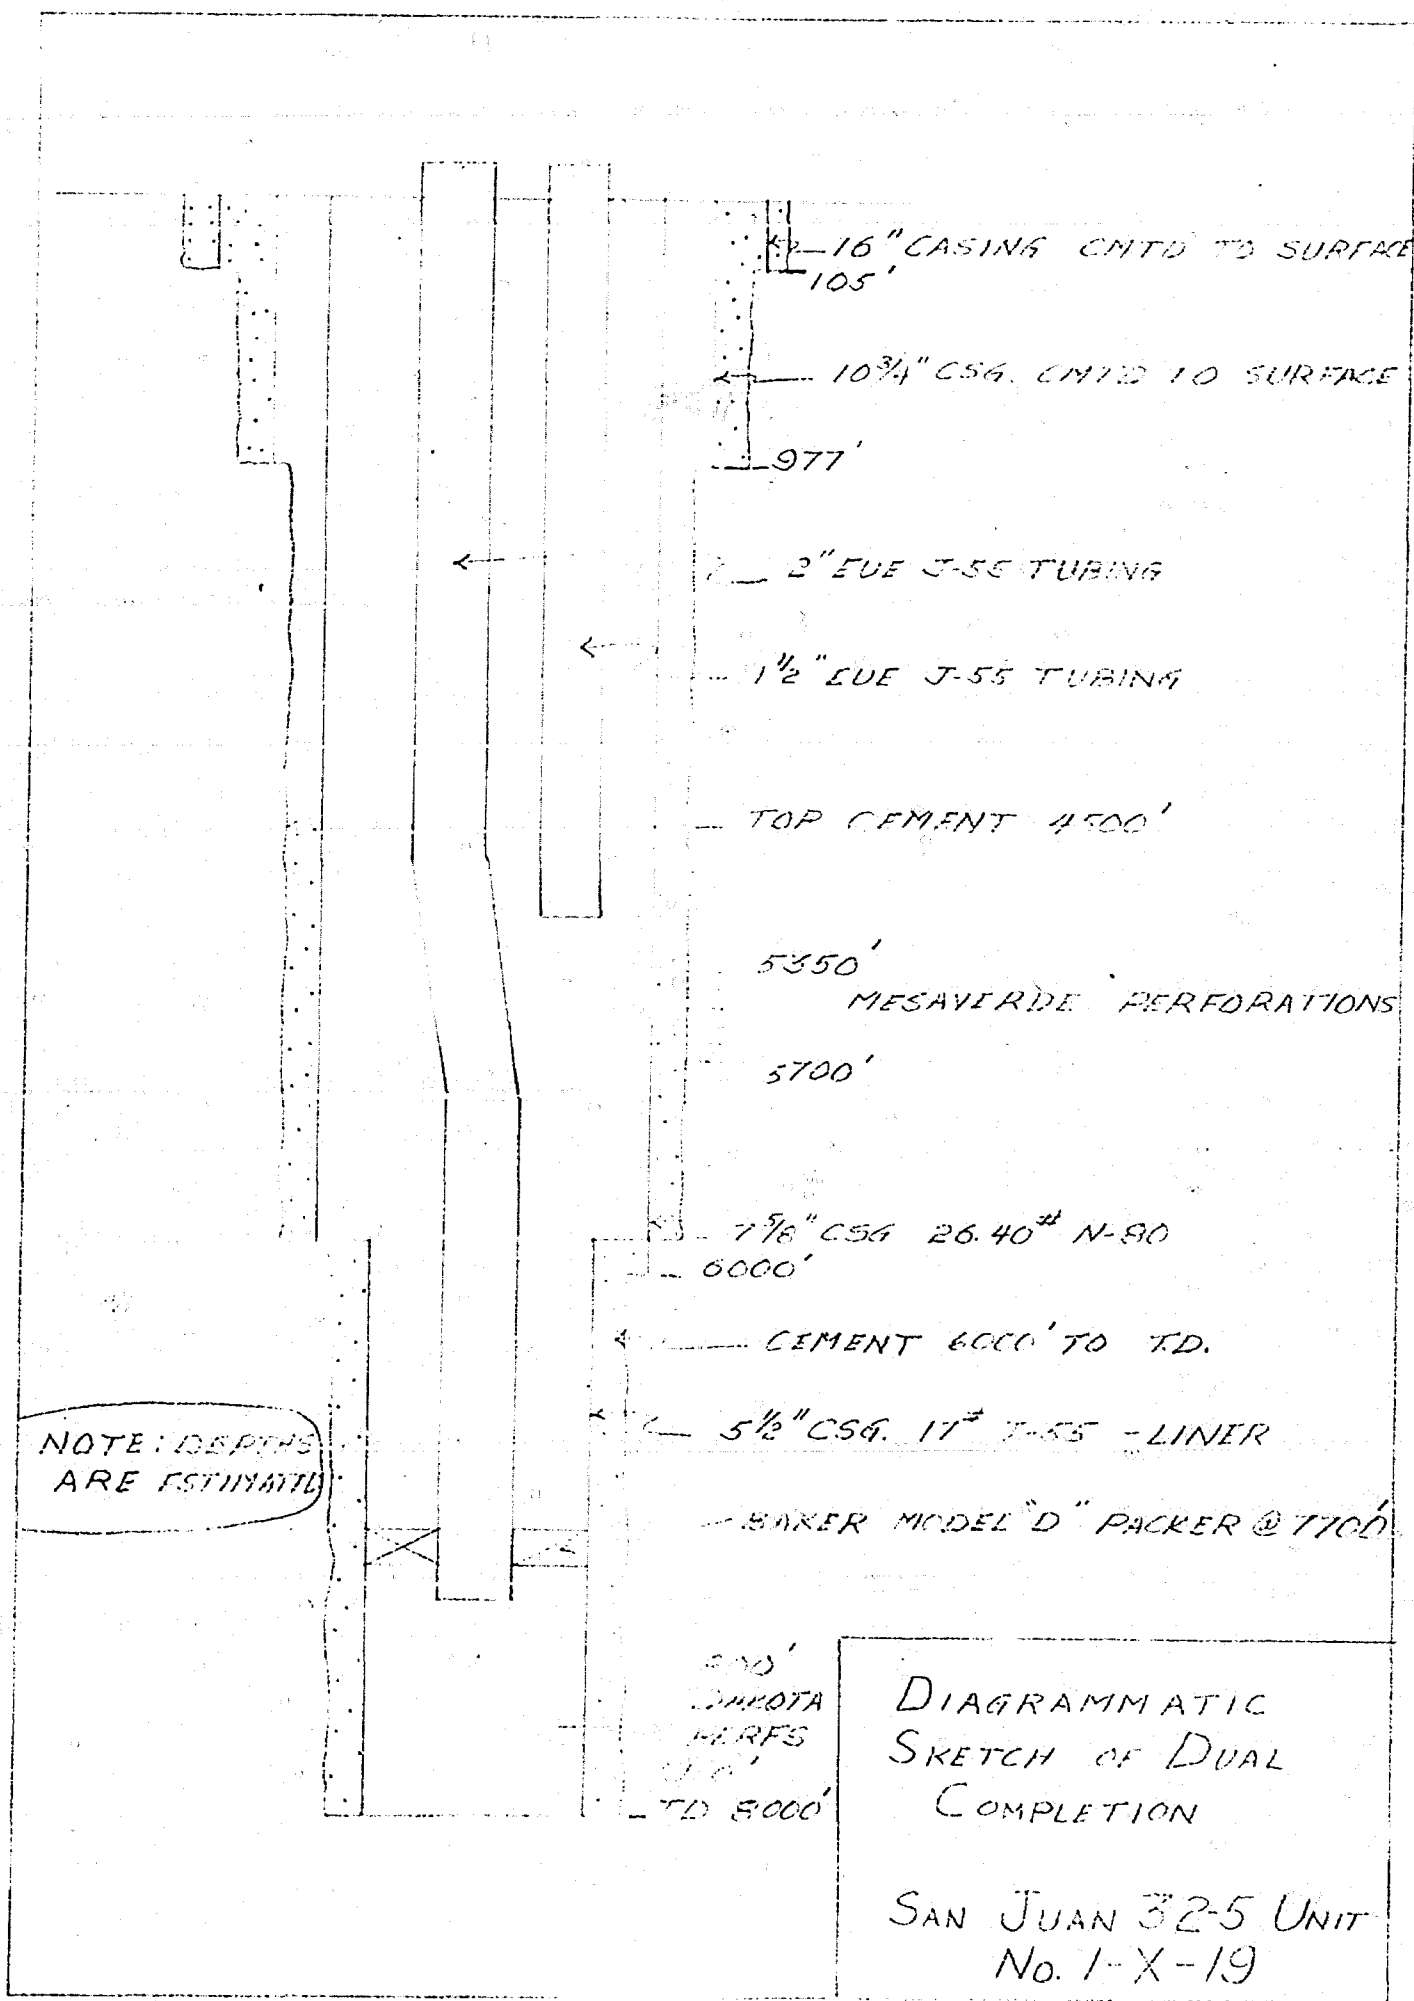 16" CASING CMTD TO SURFACE
105'
10 3/4" CSG. CMTD TO SURFACE
977'
2" EUE J-55 TUBING
1 1/2" EUE J-55 TUBING
TOP CEMENT 4500'
5350'
MESAVERDE PERFORATIONS
5700'
7 5/8" CSG 26.40# N-80
6000'
CEMENT 6000' TO T.D.
5 1/2" CSG. 17# J-55 - LINER
NOTE: DEPTHS
ARE ESTIMATED
BAKER MODEL "D" PACKER @ 7700'
DAKOTA
PERFS
TD 8000'
DIAGRAMMATIC
SKETCH OF DUAL
COMPLETION
SAN JUAN 32-5 UNIT
No. 1-X-19